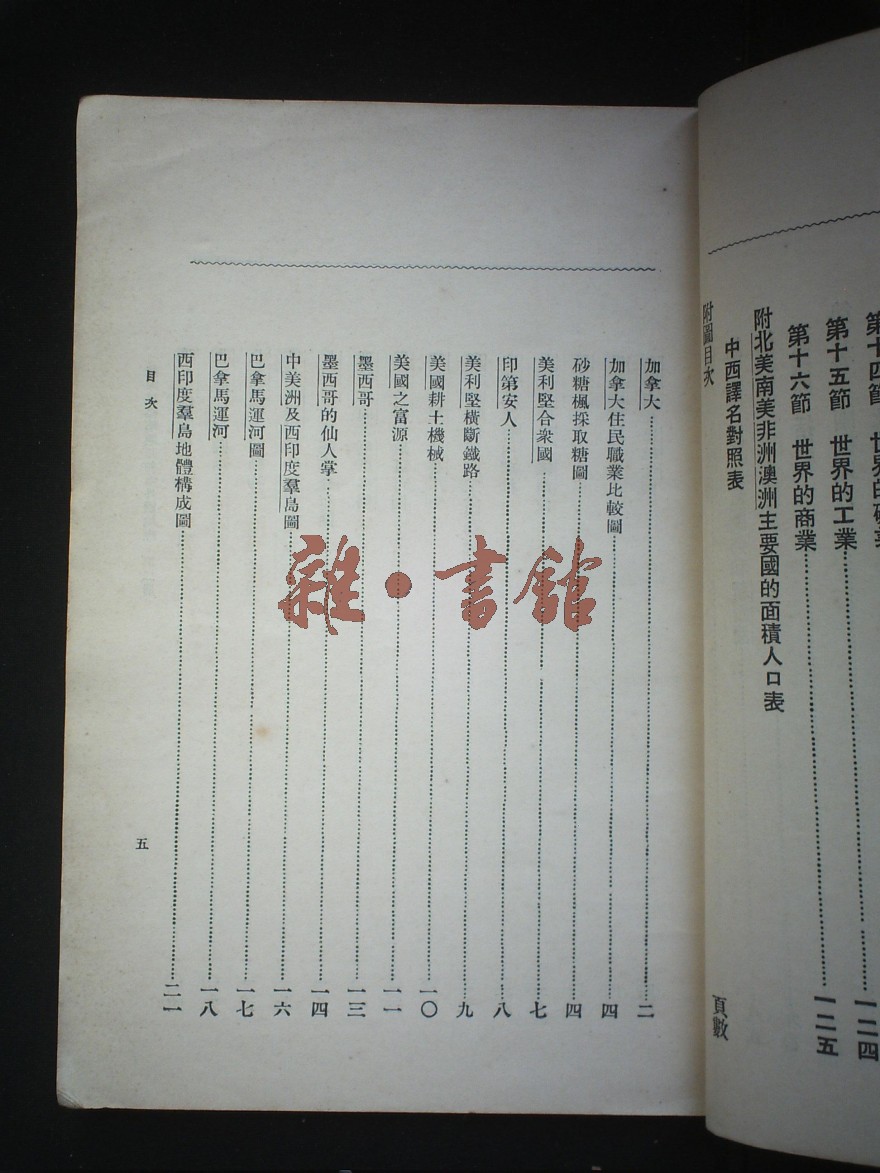 世界的
一二四
第十五節 世界的工業
一二五
第十六節 世界的商業
附北美南美非洲澳洲主要國的面積人口表
中西譯名對照表
附圖目次
頁數
加拿大 二
加拿大住民職業比較圖 四
砂糖楓採取糖圖 四
美利堅合衆國 七
印第安人 八
美利堅橫斷鐵路 九
美國耕土機械 一〇
美國之富源 一一
墨西哥 一三
墨西哥的仙人掌 一四
中美洲及西印度羣島圖 一六
巴拿馬運河圖 一七
巴拿馬運河 一八
西印度羣島地體構成圖 二一
目次
五
雜·書館